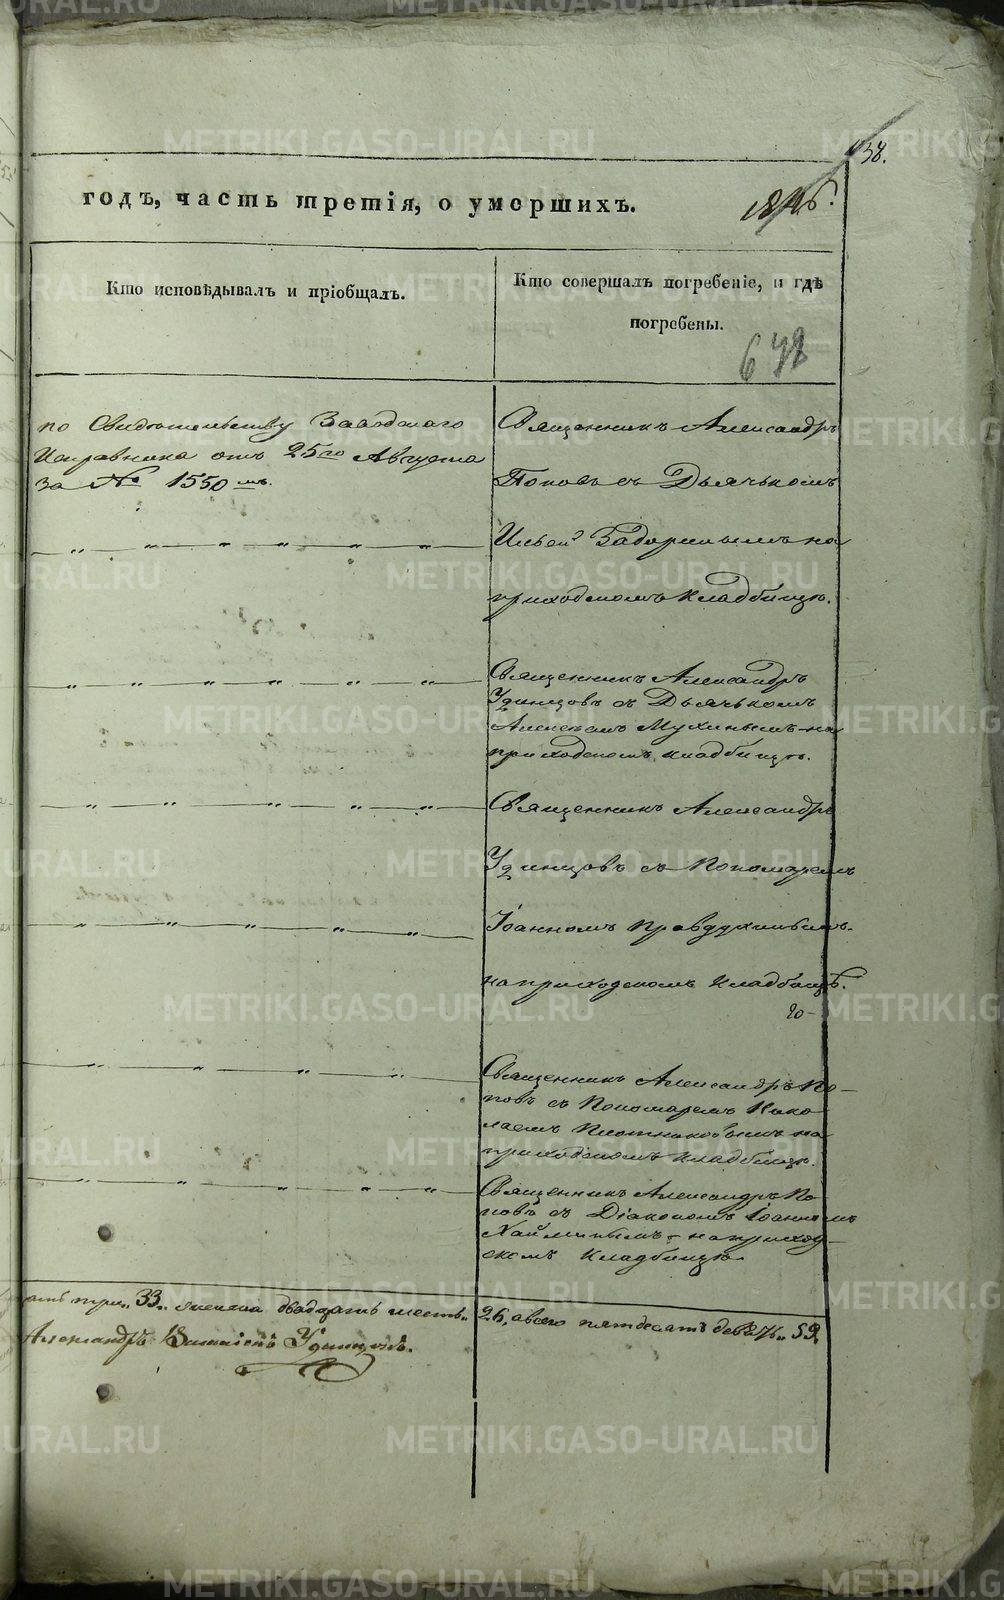 38.
годъ, часть третія, о умершихъ.
Кто исповѣдывалъ и пріобщалъ.
Кто совершалъ погребеніе, и гдѣ
погребены.
по Свидѣтельству Заводскаго
Исправника отъ 25го Августа
за № 1550мъ.
Священникъ Александръ
Поповъ съ Дьячькомъ
Ильей Задоринымъ на
приходскомъ кладбищѣ.
Священникъ Александръ
Удинцовъ съ Дьячькомъ
Алексѣемъ Мухинымъ на
приходскомъ кладбищѣ.
Священникъ Александръ
Удинцовъ съ Пономаремъ
Іоанномъ Правдухинымъ
на приходскомъ кладбищѣ.
Священникъ Александръ По-
повъ съ Пономаремъ Нико-
лаемъ Плотниковымъ на
приходскомъ кладбищѣ.
Священникъ Александръ По-
повъ съ Діакономъ Іоанномъ
на приход-
скомъ кладбищѣ
три „33„ женска двадцать шесть „26, авсего пятдесятъ девять „59.
Александръ Удинцовъ.
METRIKI.GASO-URAL.RU